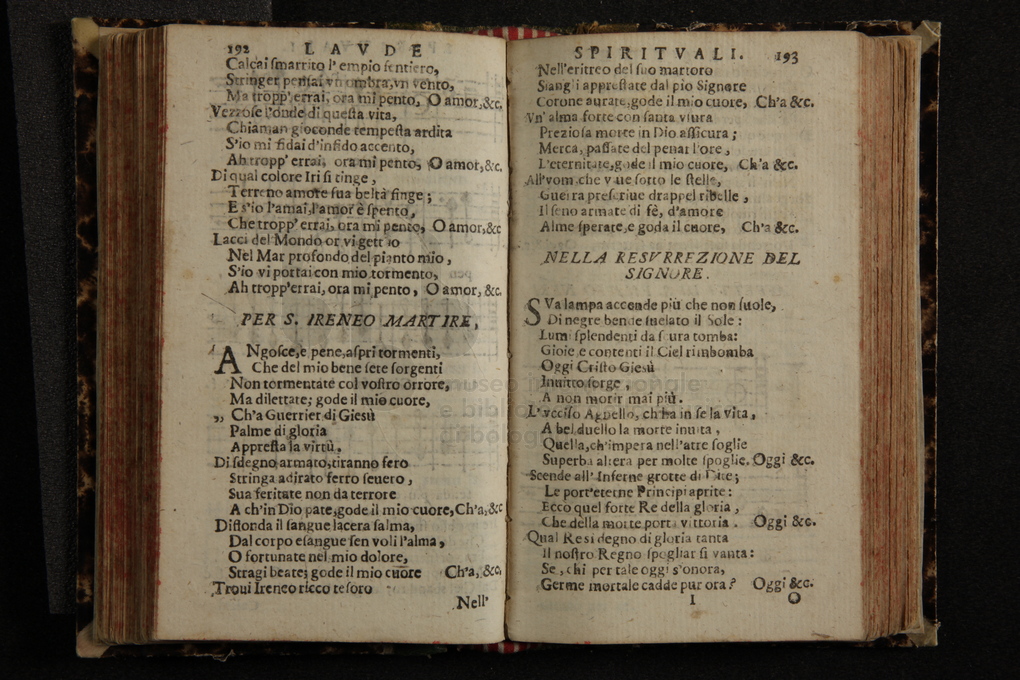 192 LAVDE
Calçai ſmarrito l'empio ſentiero,
Stringer penſai vn ombra, vn vento,
Ma tropp' errai, ora mi pento, O amor, &c.
Vezzoſe l'onde di queſta vita,
Chiaman gioconde tempeſta ardita
S'io mi fidai d'infido accento,
Ah tropp' errai, ora mi pento, O amor, &c.
Di qual colore Iri ſi tinge,
Terreno amore ſua beltà finge;
E s'io l'amai, l'amor è ſpento,
Che tropp' errai, ora mi pento, O amor, &c
Lacci del Mondo or vi gett'io
Nel Mar profondo del pianto mio,
S'io vi portai con mio tormento,
Ah tropp'errai, ora mi pento, O amor, &c.
PER S. IRENEO MARTIRE,
ANgoſce, e pene, aſpri tormenti,
Che del mio bene ſete ſorgenti
Non tormentate col voſtro orrore,
Ma dilettate; gode il mio cuore,
„ Ch'a Guerrier di Gieſù
Palme di gloria
Appreſta ſa virtù.
Di ſdegno armato, tiranno fero
Stringa adirato ferro ſeuero,
Sua feritate non da terrore
A ch'in Dio pate, gode il mio cuore, Ch'a, &c
Diſtonda il ſangue lacera ſalma,
Dal corpo eſangue ſen voli l'alma,
O fortunate nel mio dolore,
Stragi beate; gode il mio cuore Ch'a, &c.
Troui Ireneo ricco teſoro
Nell'
SPIRITVALI. 193
Nell'eritreo del ſuo martoro
Siangli appreſtate dal pio Signore
Corone aurate, gode il mio cuore, Ch'a &c.
Vn' alma forte con ſanta vſura
Prezioſa morte in Dio aſſicura;
Merca, paſſate del penar l'ore,
L'eternitate, gode il mio cuore, Ch'a &c.
All'vom, che viue ſotto le ſtelle,
Guerra preſcriue drappel ribelle,
Il ſeno armate di fè, d'amore
Alme ſperate, e goda il cuore, Ch'a &c.
NELLA RESVRREZIONE DEL
SIGNORE.
SVa lampa accende più che non ſuole,
Di negre bende ſuelato il Sole:
Lumi ſplendenti da ſcura tomba:
Gioie, e contenti il Ciel rimbomba
Oggi Criſto Gieſù
Inuitto ſorge,
A non morir mai più.
L'vcciſo Agnello, ch'ha in ſe la vita,
A bel duello la morte inuita,
Quella, ch'impera nell'atre ſoglie
Superba altera per molte ſpoglie. Oggi &c.
Scende all' Inferne grotte di Dite;
Le port'eterne Principi aprite:
Ecco quel forte Re della gloria,
Che della morte porta vittoria. Oggi &c.
Qual Re sì degno di gloria tanta
Il noſtro Regno ſpogliar ſi vanta:
Se, chi per tale oggi s'onora,
Germe mortale cadde pur ora? Oggi &c.
I O